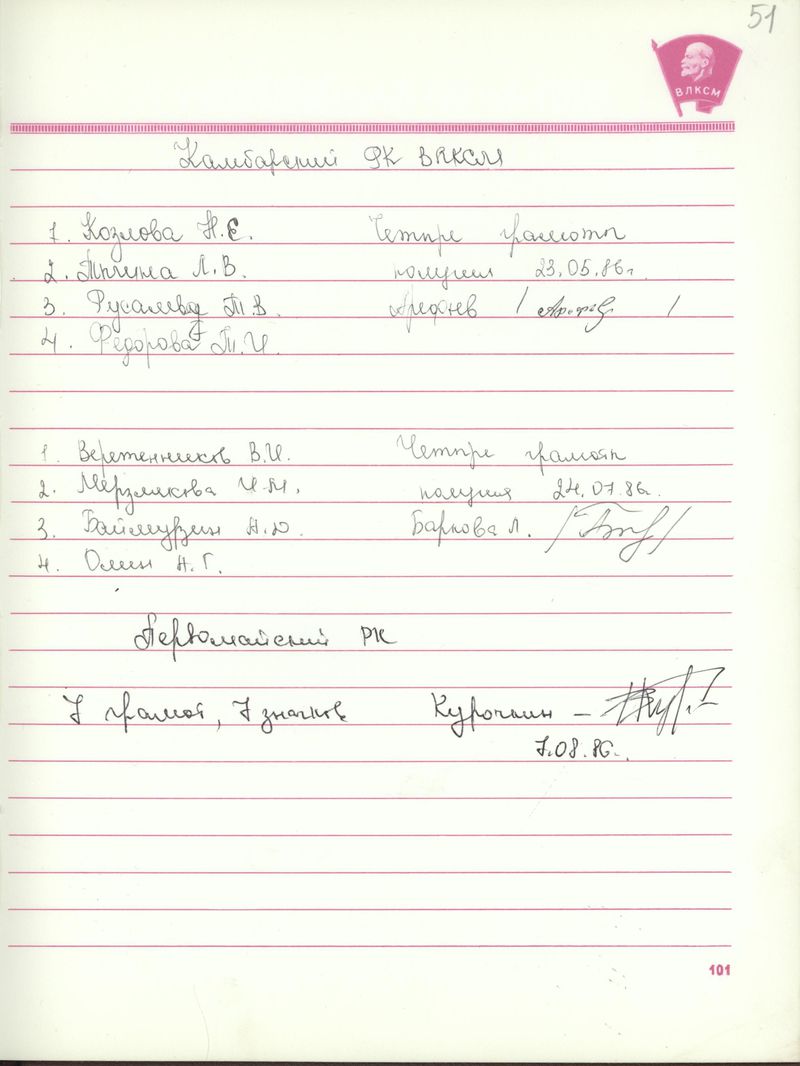 51
ВЛКСМ
Камбарский РК ВЛКСМ
1. Козлова Н.Е. Четыре грамоты
2. Л.В. получил 23.05.86г.
3. Т.В. Арефьев / /
4. Федорова Т.И.
1. Веретенников В.И. Четыре грамоты
2. Мерзлякова И.М. получил 24.07.86г.
3. Баймурзин А.Ю. Баркова Л. / /
4. Олин А.Г.
Первомайский РК
7 грамот, 7 значков Курочкин –
7.08.86г.
101